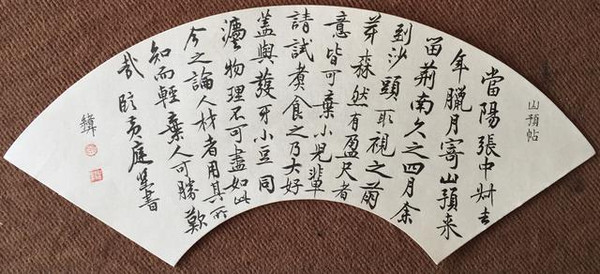 山預帖
當陽張中叔去
年臘月寄山預來
留荊南久之四月余
到沙頭取視之萌
芽森然有盈尺者
意皆可棄小兒輩
請試煮食之乃大好
蓋與發牙小豆同
灋物理不可盡如此
今之論人材者用其所
知而輕棄人可勝歎
哉 臨黃庭堅書